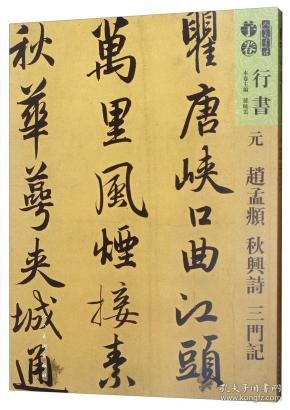 宇卷
行書
元
趙孟頫 秋興詩 三門記
瞿唐峽口曲江頭
萬里風煙接素
秋華萼夾城通
孔夫子旧书网